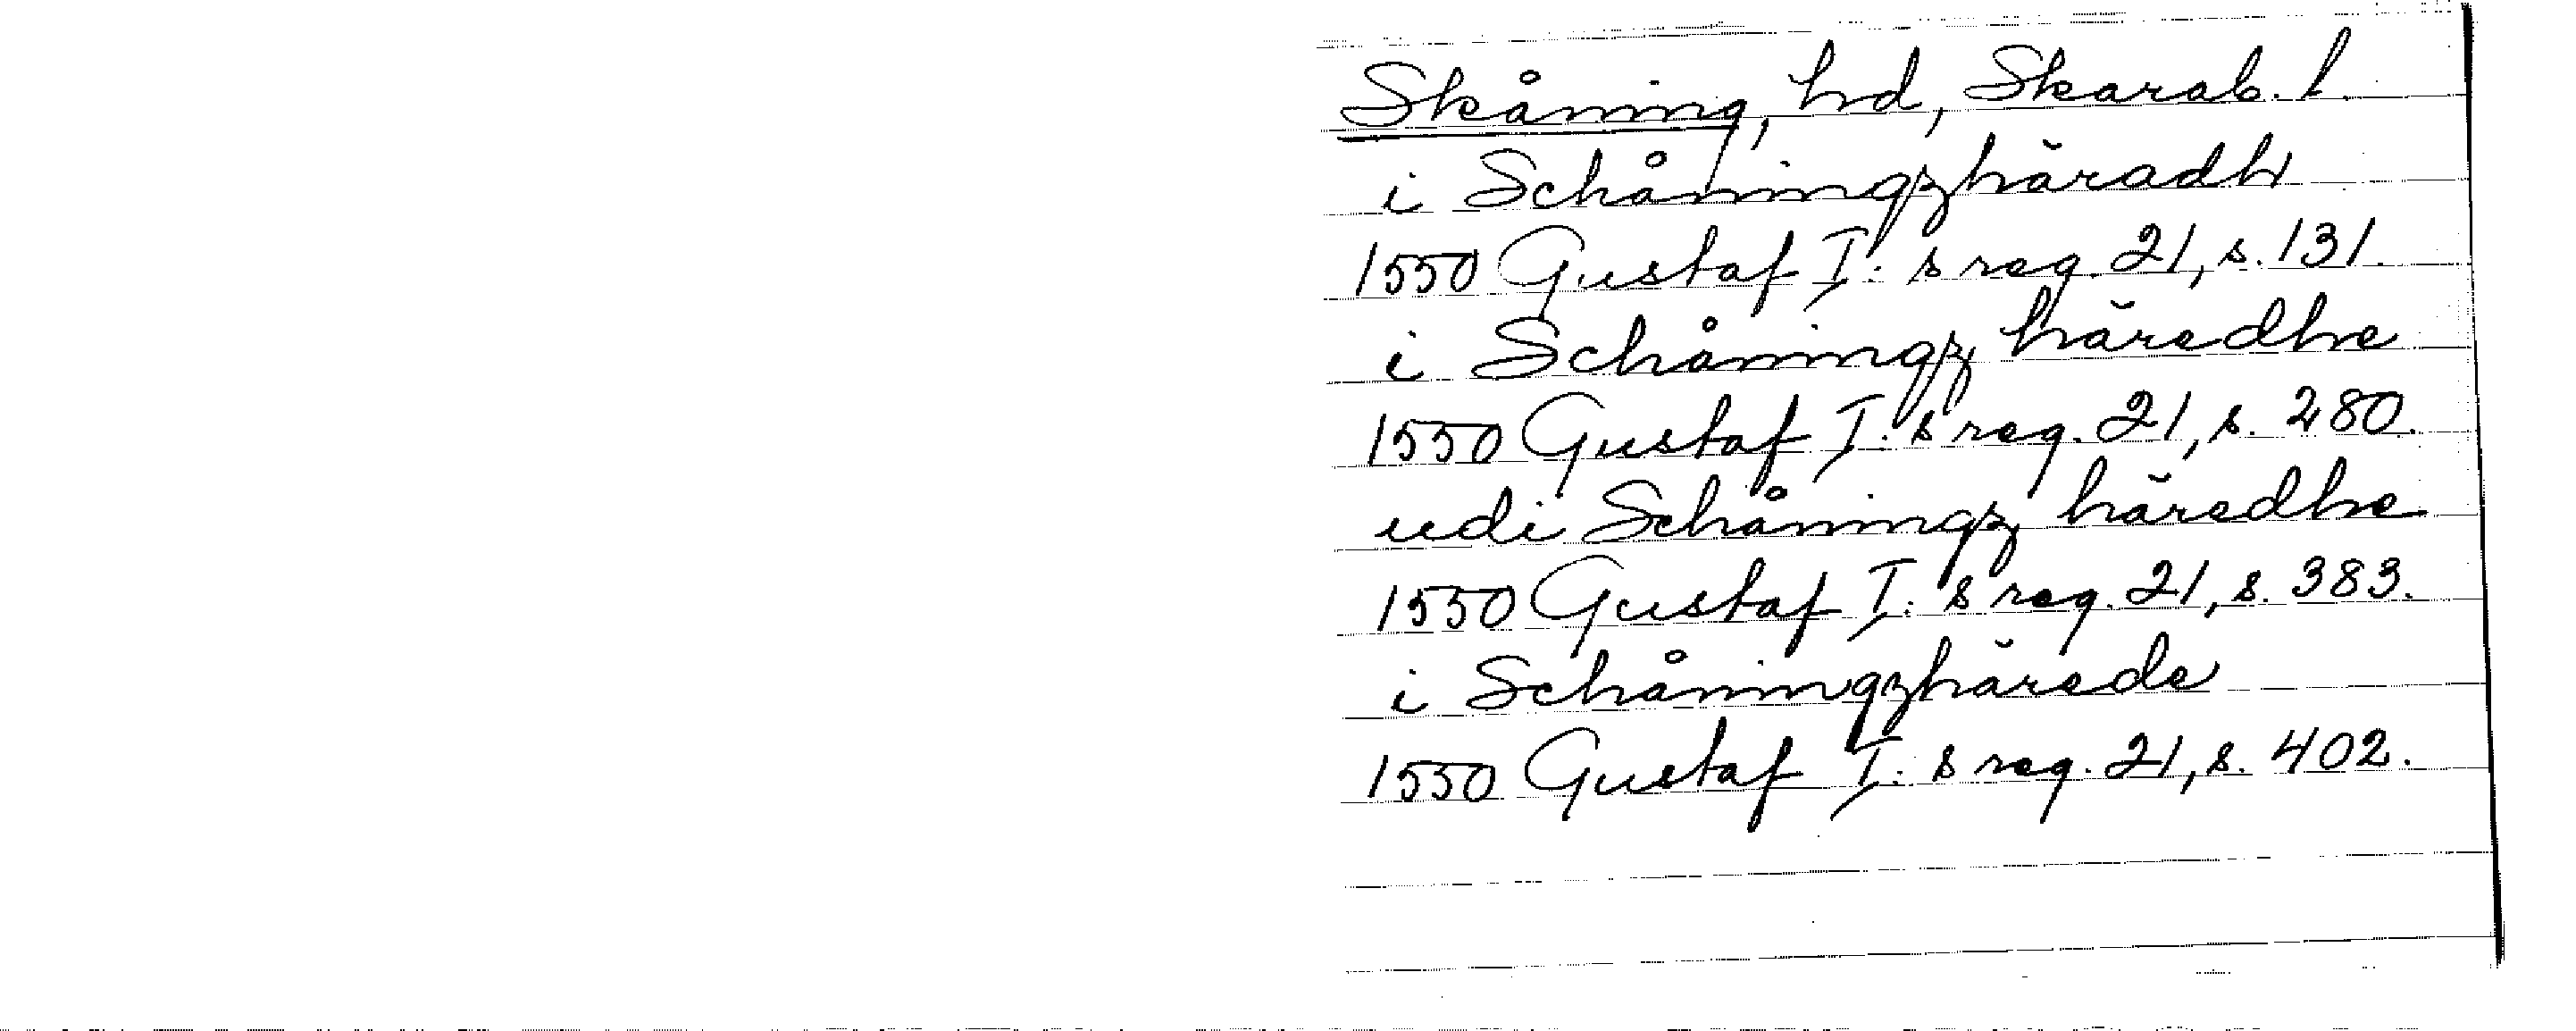 Skåning, hd, Skarab. l.
i Schåningzhäradh
1550 Gustaf I: s reg. 21, s. 131.
i Schåningz häredhe
1550 Gustaf I: s reg. 21, s. 280.
udi Schåningz häredhe
1550 Gustaf I: s reg. 21, s. 383.
i Schåningzhärede
1550 Gustaf I: s reg. 21, s. 402.